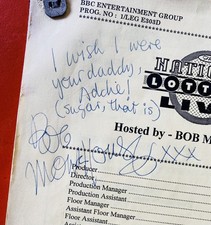 BBC ENTERTAINMENT GROUP
PROG. NO : 1/LEG E303D
I wish I were
your daddy,
Addie!
(sugar, that is)
Bob
Monkhouse xxx
NATIO
LOTTE
LIVE
Hosted by - BOB M
Producer
Director
Production Manager
Production Assistant
Floor Manager
Assistant Floor Manager